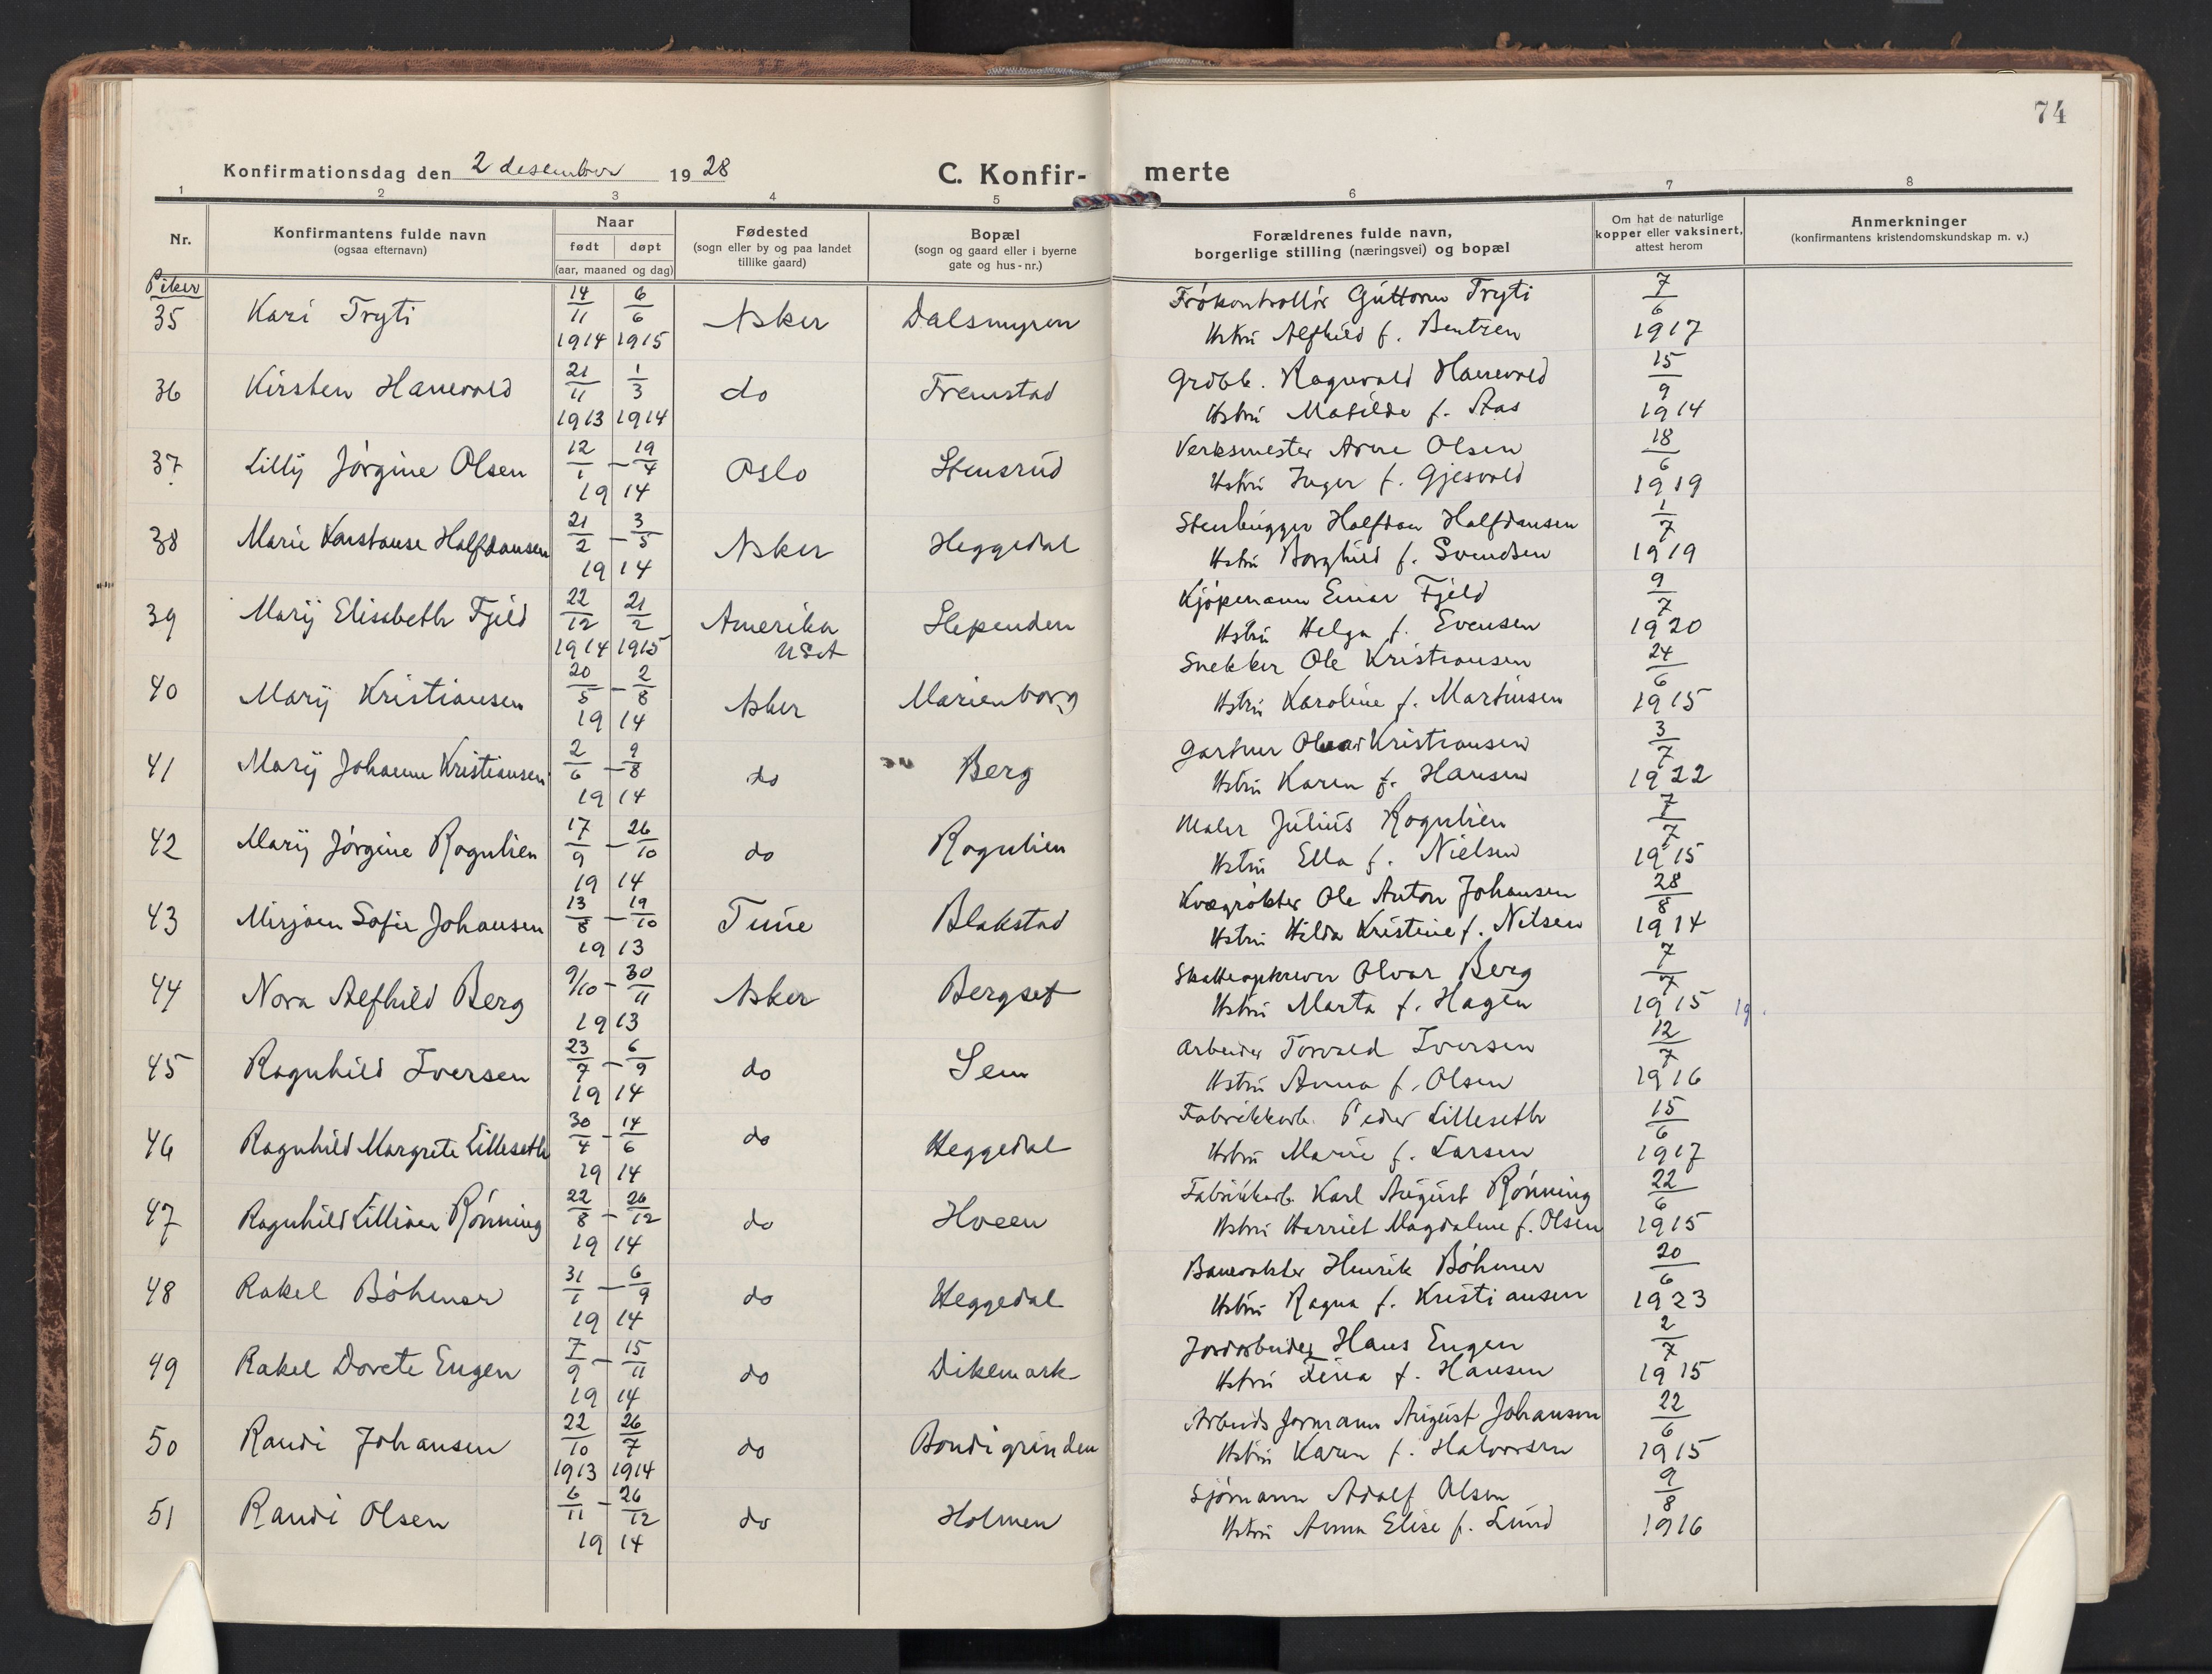 74
Konfirmationsdag den 2 desember 1928
C. Konfir-
merte
1 2 3 4 5 6 7 8
Nr.
Konfirmantens fulde navn
(ogsaa efternavn)
Naar
født døpt
(aar, maaned og dag)
Fødested
(sogn eller by og paa landet
tillike gaard)
Bopæl
(sogn og gaard eller i byerne
gate og hus-nr.)
Forældrenes fulde navn,
borgerlige stilling (næringsvei) og bopæl
Om hat de naturlige
kopper eller vaksinert,
attest herom
Anmerkninger
(konfirmantens kristendomskundskap m. v.)
Piker
35 Kari Tryti 14/11 1914 6/6 1915 Asker Dalsmyren Frøkontrollør Guttorm Tryti 7/6
Hstru Alfhild f. Bentzen 1917
36 Kirsten Hanevold 21/11 1913 1/3 1914 do Fremstad Grdbb. Ragnvald Hanevold 15/9
Hstru Matilde f. Aas 1914
37 Lilly Jørgine Olsen 12/1 – 19/4 1914 Oslo Stensrud Verksmester Arne Olsen 18/6
Hstru Inger f. Gjesvold 1919
38 Marie Konstanse Halfdansen 21/2 – 3/5 1914 Asker Heggedal Stenhugger Halfdan Halfdansen 1/7
Hstru Borghild f. Svendsen 1919
39 Mary Elisabeth Fjeld 22/12 1914 21/2 1915 Amerika Slependen Kjøpmann Einar Fjeld 9/7
USA Hstru Helga f. Evensen 1920
40 Mary Kristiansen 20/5 – 2/8 1914 Asker Marienborg Snekker Ole Kristiansen 24/6
Hstru Karoline f. Martinsen 1915
41 Mary Johanne Kristiansen 2/6 – 9/8 1914 do Berg Gartner Kristiansen 3/7
Hstru Karen f. Hansen 1922
42 Mary Jørgine Rognlien 17/9 – 26/10 1914 do Rognlien Maler Julius Rognlien 7/7
Hstru Ella f. Nielsen 1915
43 Mirjam Sofie Johansen 13/8 – 19/10 1913 Tune Blakstad Kvægrøkter Ole Anton Johansen 28/8
Hstru Hilda Kristine f. Nilsen 1914
44 Nora Alfhild Berg 9/10 – 30/11 1913 Asker Bergset Skatteopkrever Olvar Berg 7/7
Hstru Marta f. Hagen 1915 19
45 Ragnhild Iversen 23/7 – 6/9 1914 do Sem Arbeider Torvald Iversen 12/7
Hstru Anna f. Olsen 1916
46 Ragnhild Margrete Lilleseth 30/4 – 14/6 1914 do Heggedal Fabrikkarb. Peder Lilleseth 15/6
Hstru Marie f. Larsen 1917
47 Ragnhild Lillian Rønning 22/8 – 26/12 1914 do Hveen Fabrikkarb. Karl August Rønning 22/6
Hstru Harriet Magdalene f. Olsen 1915
48 Rakel Bøhmer 31/1 – 6/9 1914 do Heggedal Banevokter Henrik Bøhmer 20/6
Hstru Ragna f. Kristiansen 1923
49 Rakel Dorete Engen 7/9 – 15/11 1914 do Dikemark Jordarbeider Hans Engen 2/7
Hstru Tina f. Hansen 1915
50 Randi Johansen 22/10 1913 26/7 1914 do Bondigrinden Arbeidsformann August Johansen 22/6
Hstru Karen f. Halvorsen 1915
51 Randi Olsen 6/11 – 26/12 1914 do Holmen Sjømann Adolf Olsen 9/8
Hstru Anna Elise f. Lund 1916